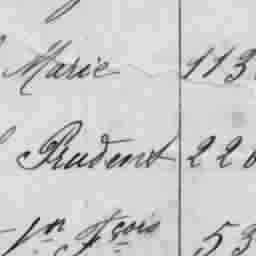 Marie 113
Prudent 226
Jn Fçois 53